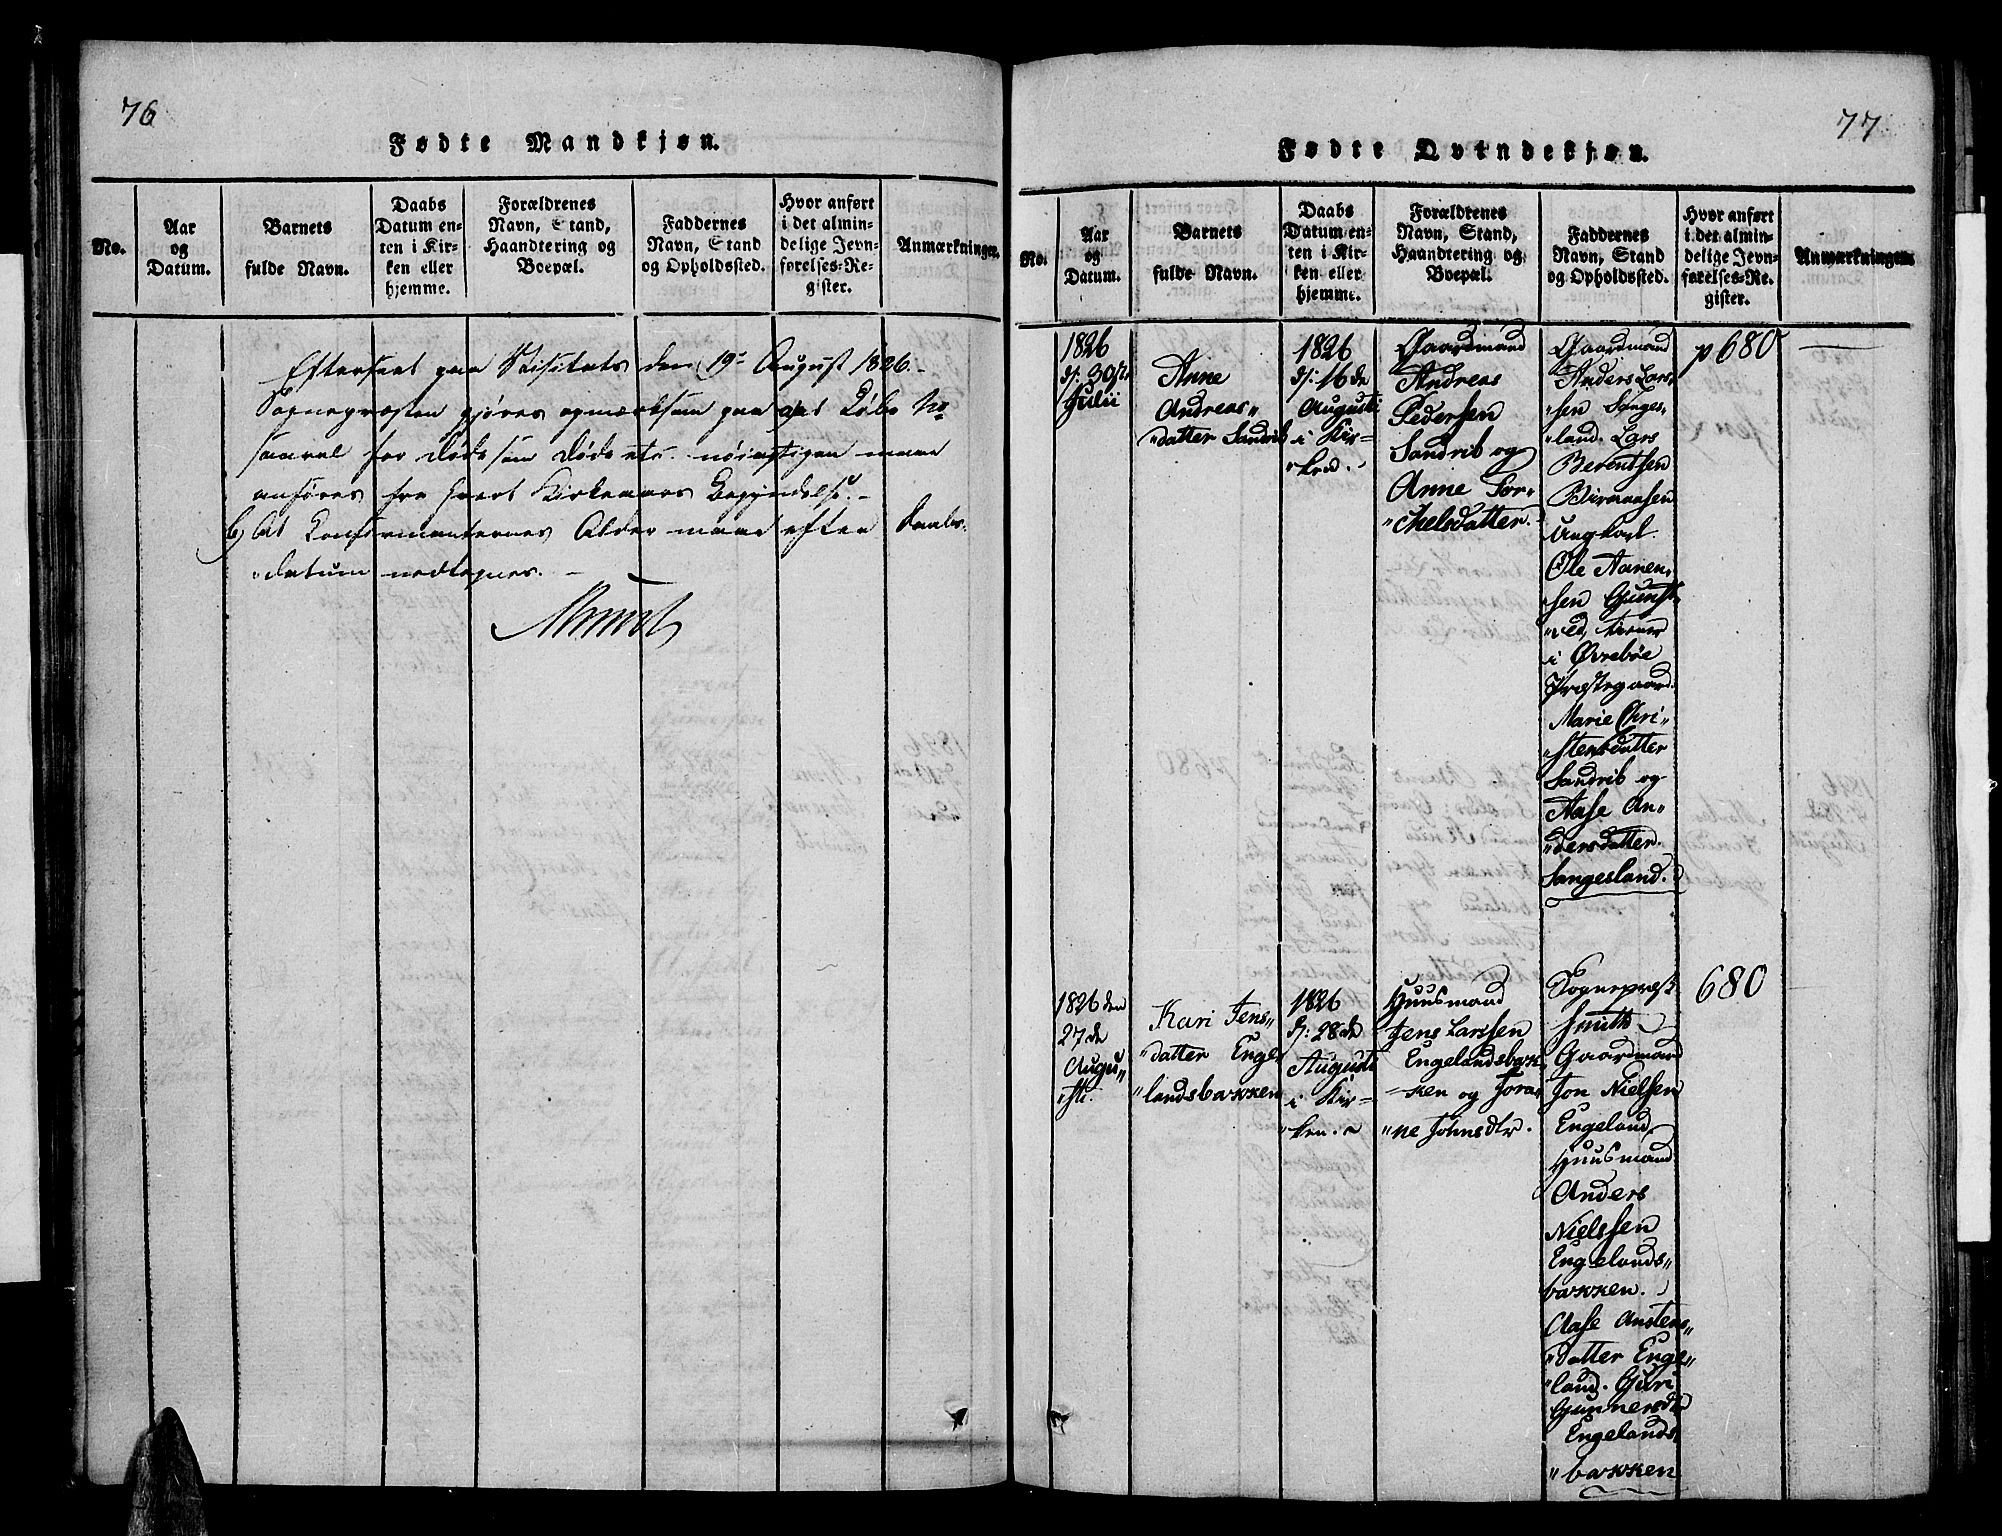 76
Fødte Mandkjøn.
No.
Aar
og
Datum.
Barnets
fulde Navn.
Daabs
Datum en-
ten i Kir-
ken eller
hjemme.
Forældrenes
Navn, Stand,
Haandtering og
Boepæl.
Faddernes
Navn, Stand
og Opholdssted.
Hvor anført
i det almin-
delige Jevn-
førelses-Re-
gister.
Anmærkninger.
Efterseet paa Visitats den 19de August 1826.
Sognepræsten gjøres opmærksom paa at Løbe No
saavel for Døde som Døbte nøiagtigen maae
anføres fra hvert Kirkeaars Begyndelse.
b, At Confirmanternes Alder maae efter Daabs-
"datum nedtegnes.
77
Fødte Qvindekjøn.
No.
Aar
og
Datum.
Barnets
fulde Navn.
Daabs
Datum en-
ten i Kir-
ken eller
hjemme.
Forældrenes
Navn, Stand,
Haandtering og
Boepæl.
Faddernes
Navn, Stand
og Opholdssted.
Hvor anført
i det almin-
delige Jevn-
førelses-Re-
gister.
Anmærkninger.
1826
d: 30te
Julii
Anne
Andreas"
"datter Sandrib
1826
d: 16de
Augusti
i Kir-
"ken.
Gaardmand
Andreas
Pedersen
Sandrib og
Anne Tor-
"chelsdatter.
Gaardmand
Anders Lars"
"sen Sanges"
"land. Lars
Berentsen
Ungkarl
Ole Aanen"
"sen
i Øvrebøe
Præstegaard.
Marie Chri"
"stensdatter
Sandrib og
Aase An"
"dersdatter
Sangesland.
p 680
1826 den
27de
Augu"
"sti.
Kari Jens"
"datter Enge"
"landsbakken
1826
d: 28de
Augusti
i Kir-
"ken.
Huusmand
Jens Larssen
Engelandsbak"
"ken og Jora"
"ne Johnsdtr.
Sognepræst
Smith
Gaardmand
Jon Nielsen
Engeland
Huusmand
Anders
Nielssen
Engelands"
bakken.
Aase Austens"
"datter Enge"
"land. Guri
Gunnersdtr
Engelands"
"bakken
680